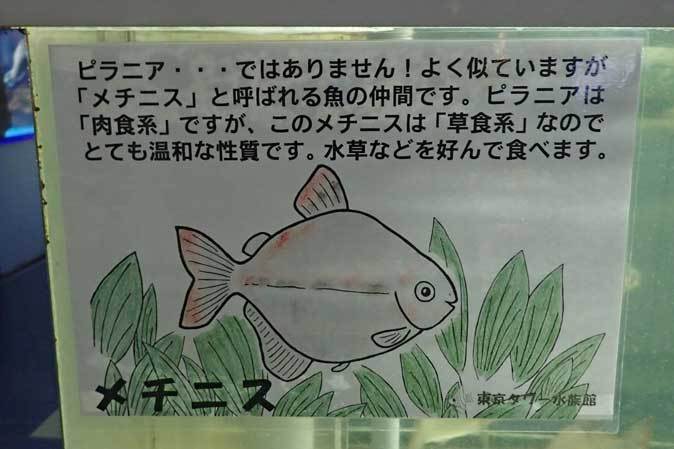 ピラニア・・・ではありません！よく似ていますが
「メチニス」と呼ばれる魚の仲間です。ピラニアは
「肉食系」ですが、このメチニスは「草食系」なので
とても温和な性質です。水草などを好んで食べます。
メチニス
東京タワー水族館